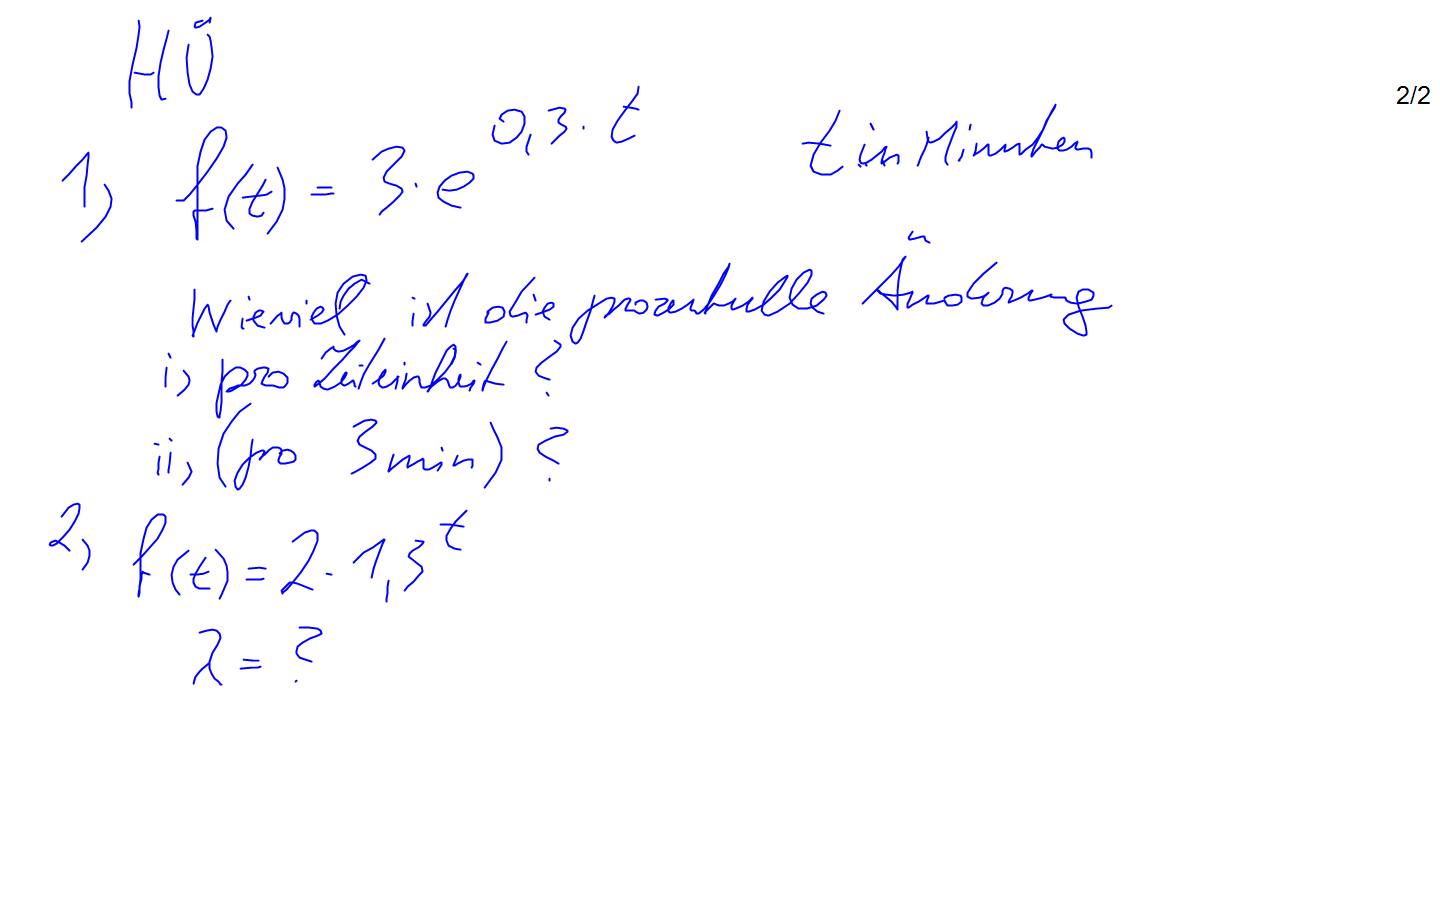 HÜ
2/2
1) f(t) = 3 · e^0,3 · t   t in Minuten
Wieviel ist die prozentuelle Änderung
i) pro Zeiteinheit ?
ii) (pro 3min) ?
2) f(t) = 2 · 1,3^t
λ = ?